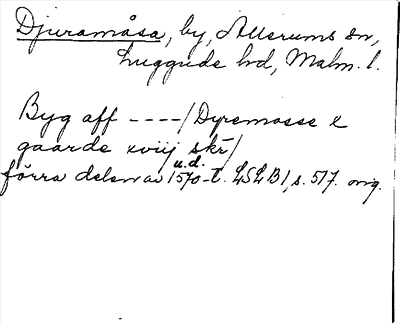 Djuramåsa, by, Allerums sn,
Luggude hd, Malm. l.
Byg aff ----/Dyremosse 2
gaarde xviij skr/
u.d.
förra delen av 1570-t. LSLB1, s. 517. orig.